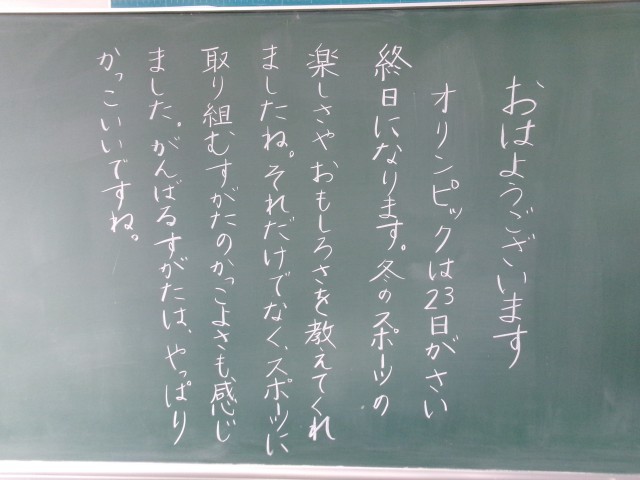 おはようございます
オリンピックは23日がさい
終日になります。冬のスポーツの
楽しさやおもしろさを教えてくれ
ましたね。それだけでなく、スポーツに
取り組むすがたのかっこよさも感じ
ました。がんばるすがたは、やっぱり
かっこいいですね。